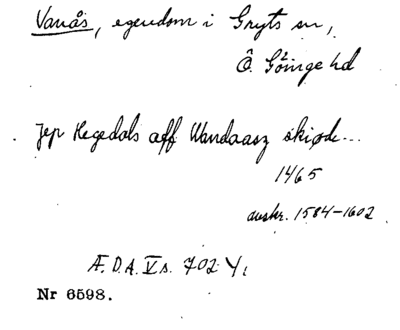 Vanås, egendom i Gryts sn,
Ö. Göinge hd
Jep Hegedals aff Wandaasz skiøde...
1465
avskr. 1584-1602
Æ.D.A. V s. 702 Y1
Nr 6598.